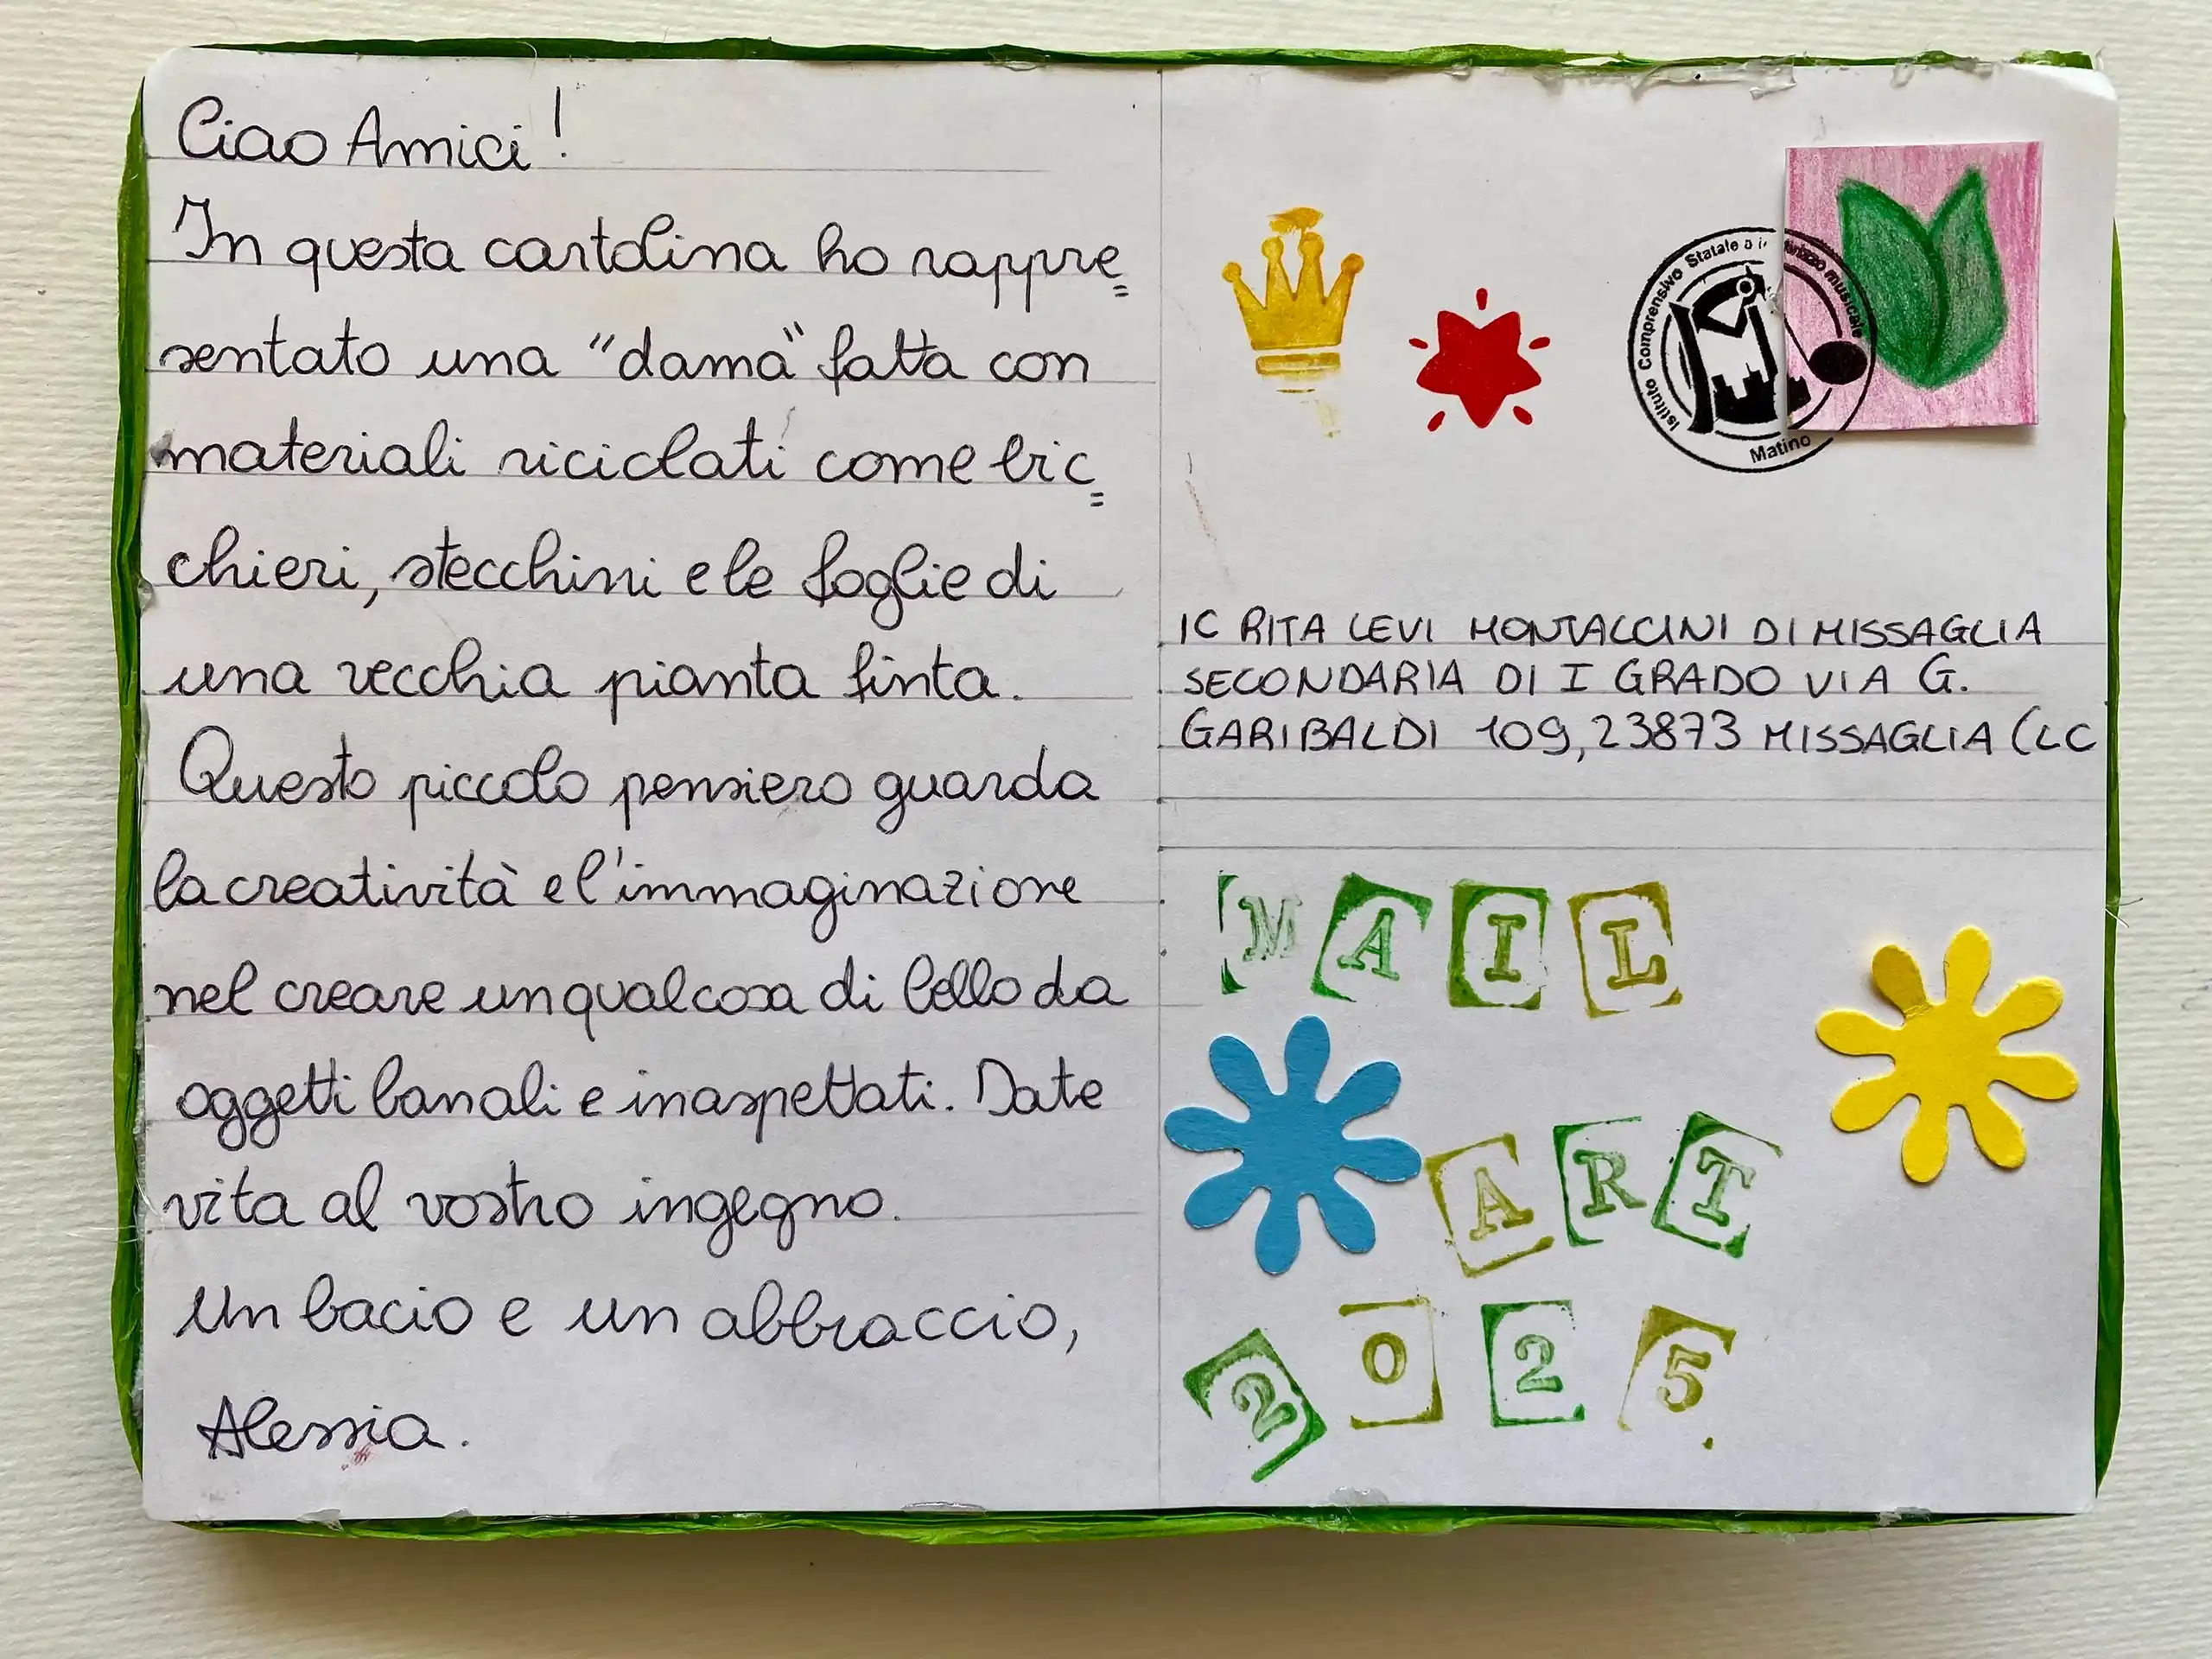 Ciao Amici!
In questa cartolina ho rappre=
sentato una "dama" fatta con
materiali riciclati come bic=
chieri, stecchini e le foglie di
una vecchia pianta finta.
Questo piccolo pensiero guarda
la creatività e l'immaginazione
nel creare un qualcosa di bello da
oggetti banali e inaspettati. Date
vita al vostro ingegno.
Un bacio e un abbraccio,
Alessia.
Istituto Comprensivo Statale a indirizzo musicale
Matino
IC RITA LEVI MONTALCINI DI MISSAGLIA
SECONDARIA DI I GRADO VIA G.
GARIBALDI 109, 23873 MISSAGLIA (LC
MAIL
ART
2025